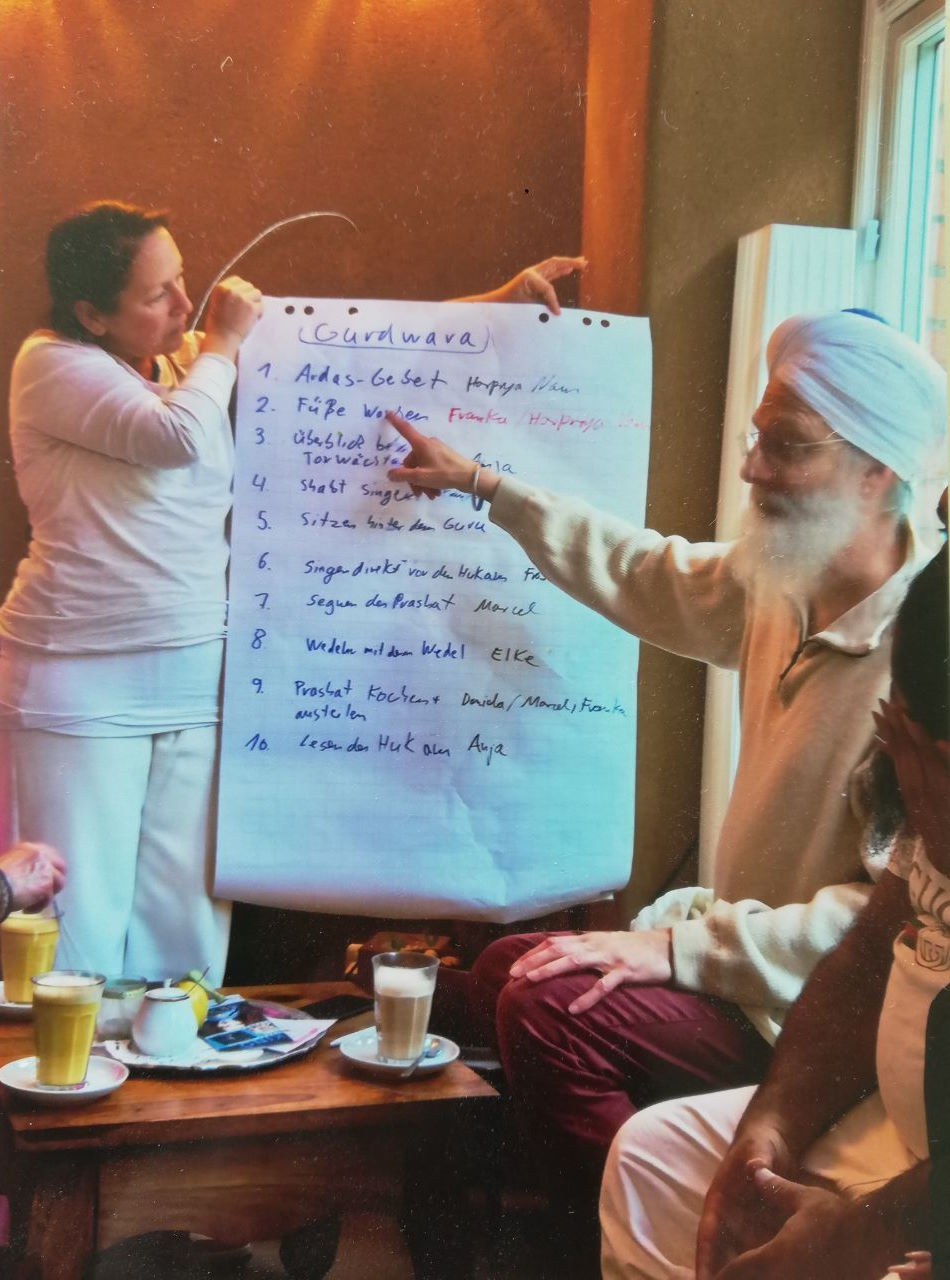 Gurdwara
1. Ardas-Gebet Harpreya
2. Füße Waschen Franka / Harpreya
3. Überblick
Anja
4. Shabt Singen
5. Sitzen hinter dem Guru
6. Singen direkt vor den Hukam
7. Segnen des Prashat Marcel
8 Wedeln mit dem Wedel Elke
9. Prashat Kochen + Davida / Marcel, Franka
austeilen
10. Lesen des Hukam Anja